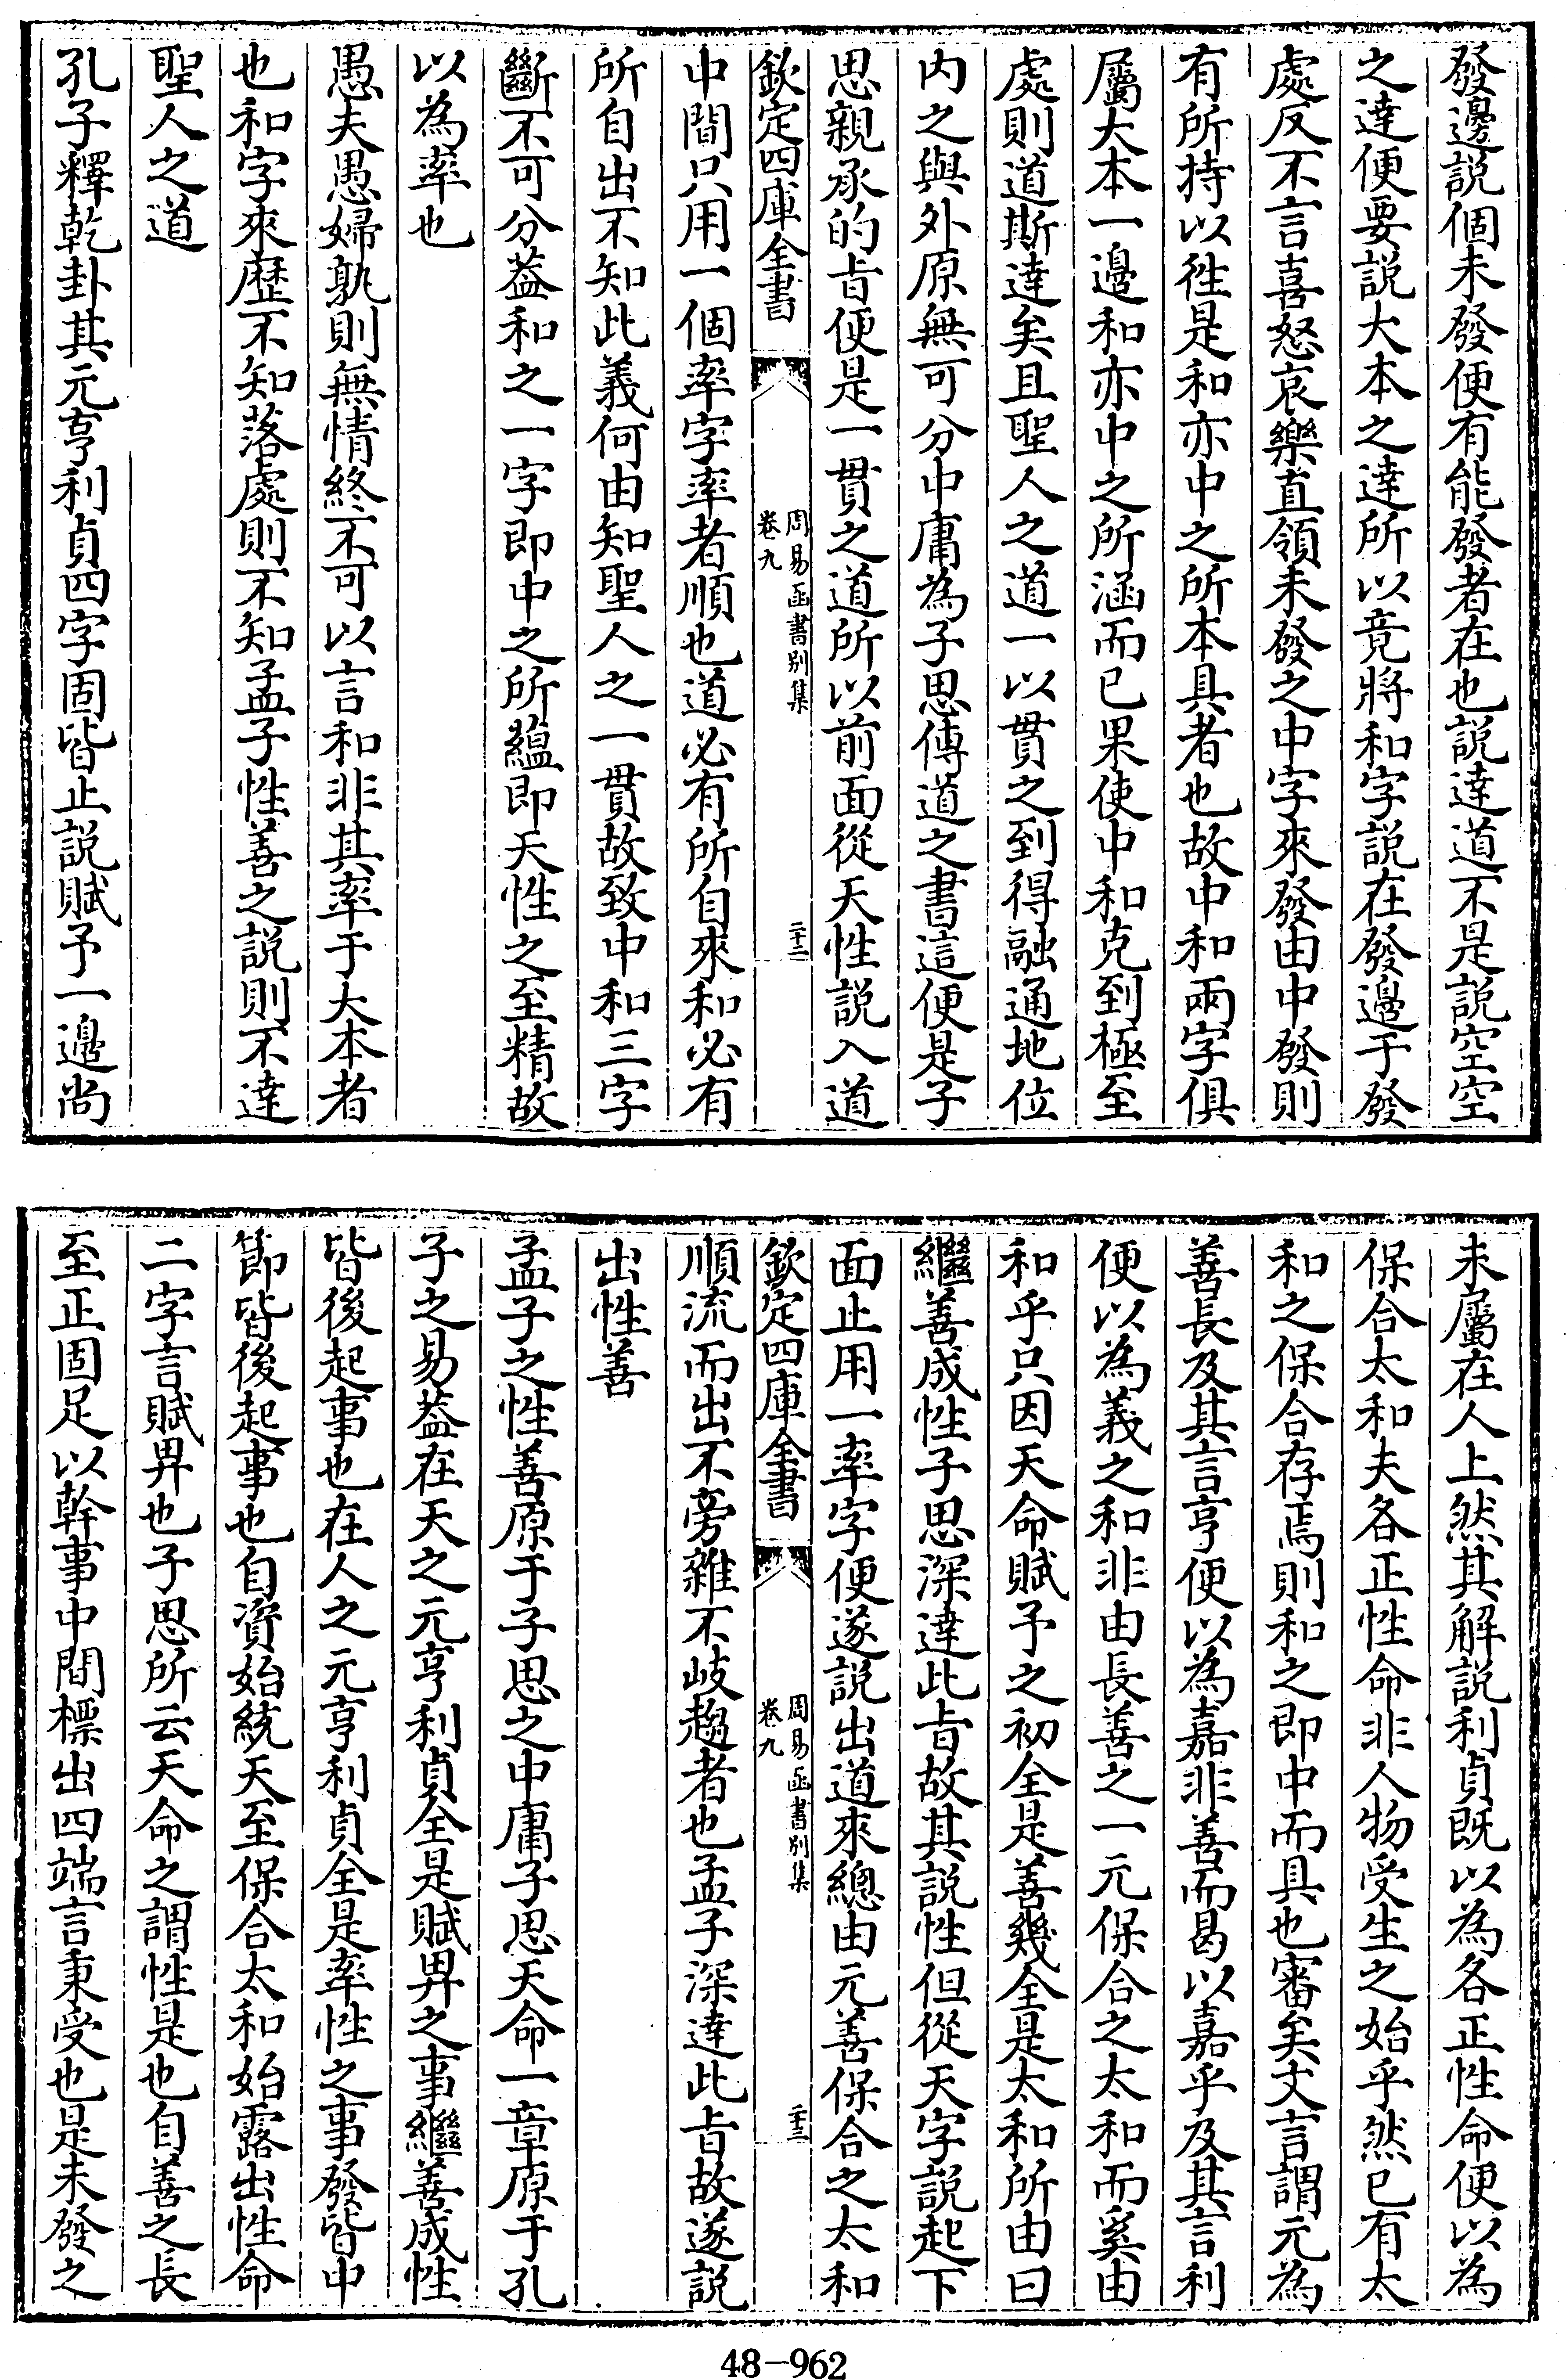 發邊説個未發便有能發者在也説達道不是説空空
之達便要説大本之達所以竟將和字説在發邊于發
處反不言喜怒哀樂直領未發之中字來發由中發則
有所持以徃是和亦中之所本具者也故中和兩字俱
屬大本一邊和亦中之所涵而已果使中和克到極至
處則道斯達矣且聖人之道一以貫之到得融通地位
内之與外原無可分中庸為子思傳道之書這便是子
思親承的㫖便是一貫之道所以前面從天性説入道
欽定四庫全書
周易函書别集
卷九
二十二
中間只用一個率字率者順也道必有所自來和必有
所自出不知此義何由知聖人之一貫故致中和三字
斷不可分葢和之一字即中之所藴即天性之至精故
以為率也
愚夫愚婦孰則無情終不可以言和非其率于大本者
也和字來歴不知落處則不知孟子性善之説則不達
聖人之道
孔子釋乾卦其元亨利貞四字固皆止説賦予一邊尚
未屬在人上然其解説利貞既以為各正性命便以為
保合太和夫各正性命非人物受生之始乎然已有太
和之保合存焉則和之即中而具也審矣文言謂元為
善長及其言亨便以為嘉非善而曷以嘉乎及其言利
便以為義之和非由長善之一元保合之太和而奚由
和乎只因天命賦予之初全是善幾全是太和所由曰
繼善成性子思深達此㫖故其説性但從天字説起下
面止用一率字便遂説出道來總由元善保合之太和
欽定四庫全書
周易函書别集
卷九
二十三
順流而出不旁雜不岐趨者也孟子深達此㫖故遂説
出性善
孟子之性善原于子思之中庸子思天命一章原于孔
子之易葢在天之元亨利貞全是賦畀之事繼善成性
皆後起事也在人之元亨利貞全是率性之事發皆中
節皆後起事也自資始統天至保合太和始露出性命
二字言賦畀也子思所云天命之謂性是也自善之長
至正固足以幹事中間標出四端言秉受也是未發之
48-962